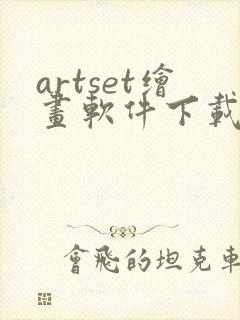 artset繪
畫軟件下載
會飛的坦克車